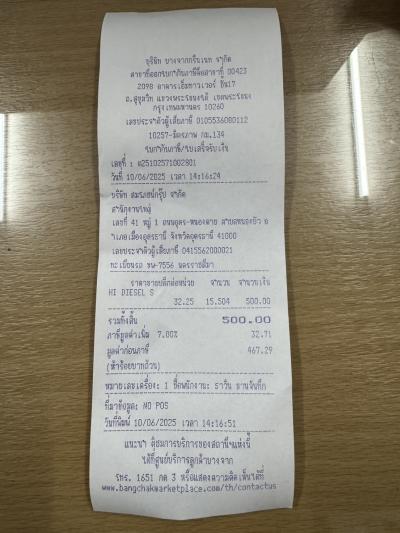 บริษัท บางจากกรีนเนท จำกัด
สาขาที่ออกใบกำกับภาษีคือสาขาที่ 00423
2098 อาคารเอ็มทาวเวอร์ ชั้น17
ถ.สุขุมวิท แขวงพระโขนงใต้ เขตพระโขนง
กรุงเทพมหานคร 10260
เลขประจำตัวผู้เสียภาษี 0105536080112
10257-มิตรภาพ กม.134
ใบกำกับภาษี/ใบเสร็จรับเงิน
เลขที่ : 025102571002801
วันที่ 10/06/2025 เวลา 14:16:24
บริษัท สมรภชน์กรุ๊ป จำกัด
สำนักงานใหญ่
เลขที่ 41 หมู่ 1 ถนนอุดร-หนองคาย ตำบลหนองบัว อ
ำเภอเมืองอุดรธานี จังหวัดอุดรธานี 41000
เลขประจำตัวผู้เสียภาษี 0415562000021
ทะเบียนรถ ขน-7556 นครราชสีมา
ราคาขายปลีกต่อหน่วย จำนวน จำนวนเงิน
HI DIESEL S
32.25 15.504 500.00
รวมทั้งสิ้น 500.00
ภาษีมูลค่าเพิ่ม 7.00% 32.71
มูลค่าก่อนภาษี 467.29
(ห้าร้อยบาทถ้วน)
หมายเลขเครื่อง: 1 ชื่อพนักงาน: ธาวิน
ที่มาข้อมูล: NO POS
วันที่พิมพ์ 10/06/2025 เวลา 14:16:51
แนะนำ ตู้ชมการบริการของสถานีฯแห่งนี้
ได้ที่ศูนย์บริการลูกค้าบางจาก
โทร. 1651 กด 3 หรือแสดงความคิดเห็นได้ที่
www.bangchakmarketplace.com/th/contactus